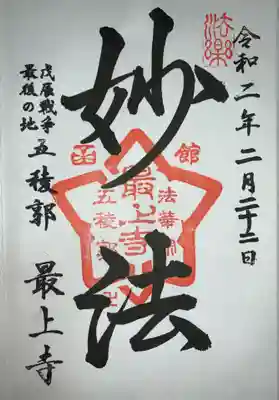 法楽
令和二年二月二十二日
妙法
函館
最上寺
五稜郭
戊辰戦争
最後の地
五稜郭
最上寺